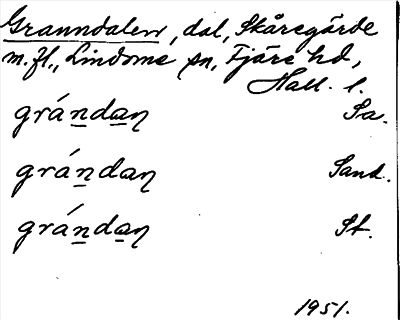 Granndalen, dal, Skåregärde
m.fl., Lindome sn, Fjäre hd,
Hall. l.
grándaṉ Sa.
grándaṉ Sand.
grándaṉ St.
1951.